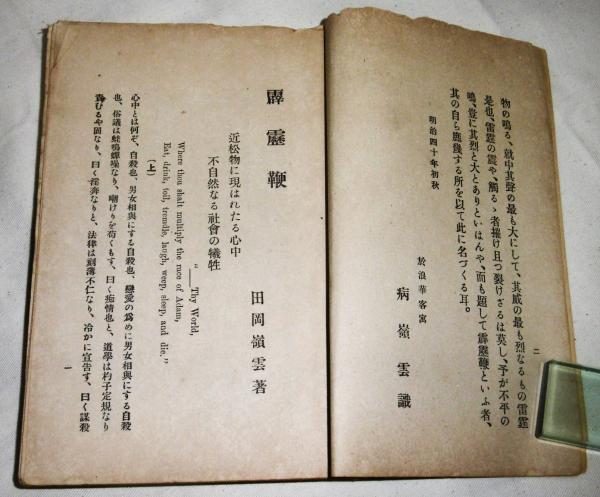 二
物の鳴る、就中其聲の最も大にして、其威の最も烈なるもの雷霆
是也、雷霆の震や、觸るゝ者摧け且つ裂けざるは莫し、予が不平の
鳴、豈に其烈と大とありといはんや、而も題して霹靂鞭といふ者、
其の自ら庶幾する所を以て此に名づくる耳。
明治四十年初秋
於浪華客寓
病嶺雲識
霹靂鞭
田岡嶺雲著
近松物に現はれたる心中
不自然なる社會の犠牲
"——Thy World,
Where thou shalt multiply the race of Adam,
Eat, drink, toil, tremble, laugh, weep, sleep, and die."
(上)
心中とは何ぞ、自殺也、男女相與にする自殺也、戀愛の爲めに男女相與にする自殺
也、俗議は蛙鳴蟬噪なり、嘲けりを苟くもす、曰く痴情也と、道學は杓子定規なり
責むるや固なり、曰く淫奔なりと、法律は刻薄不仁なり、冷かに宣告す、曰く謀殺
一